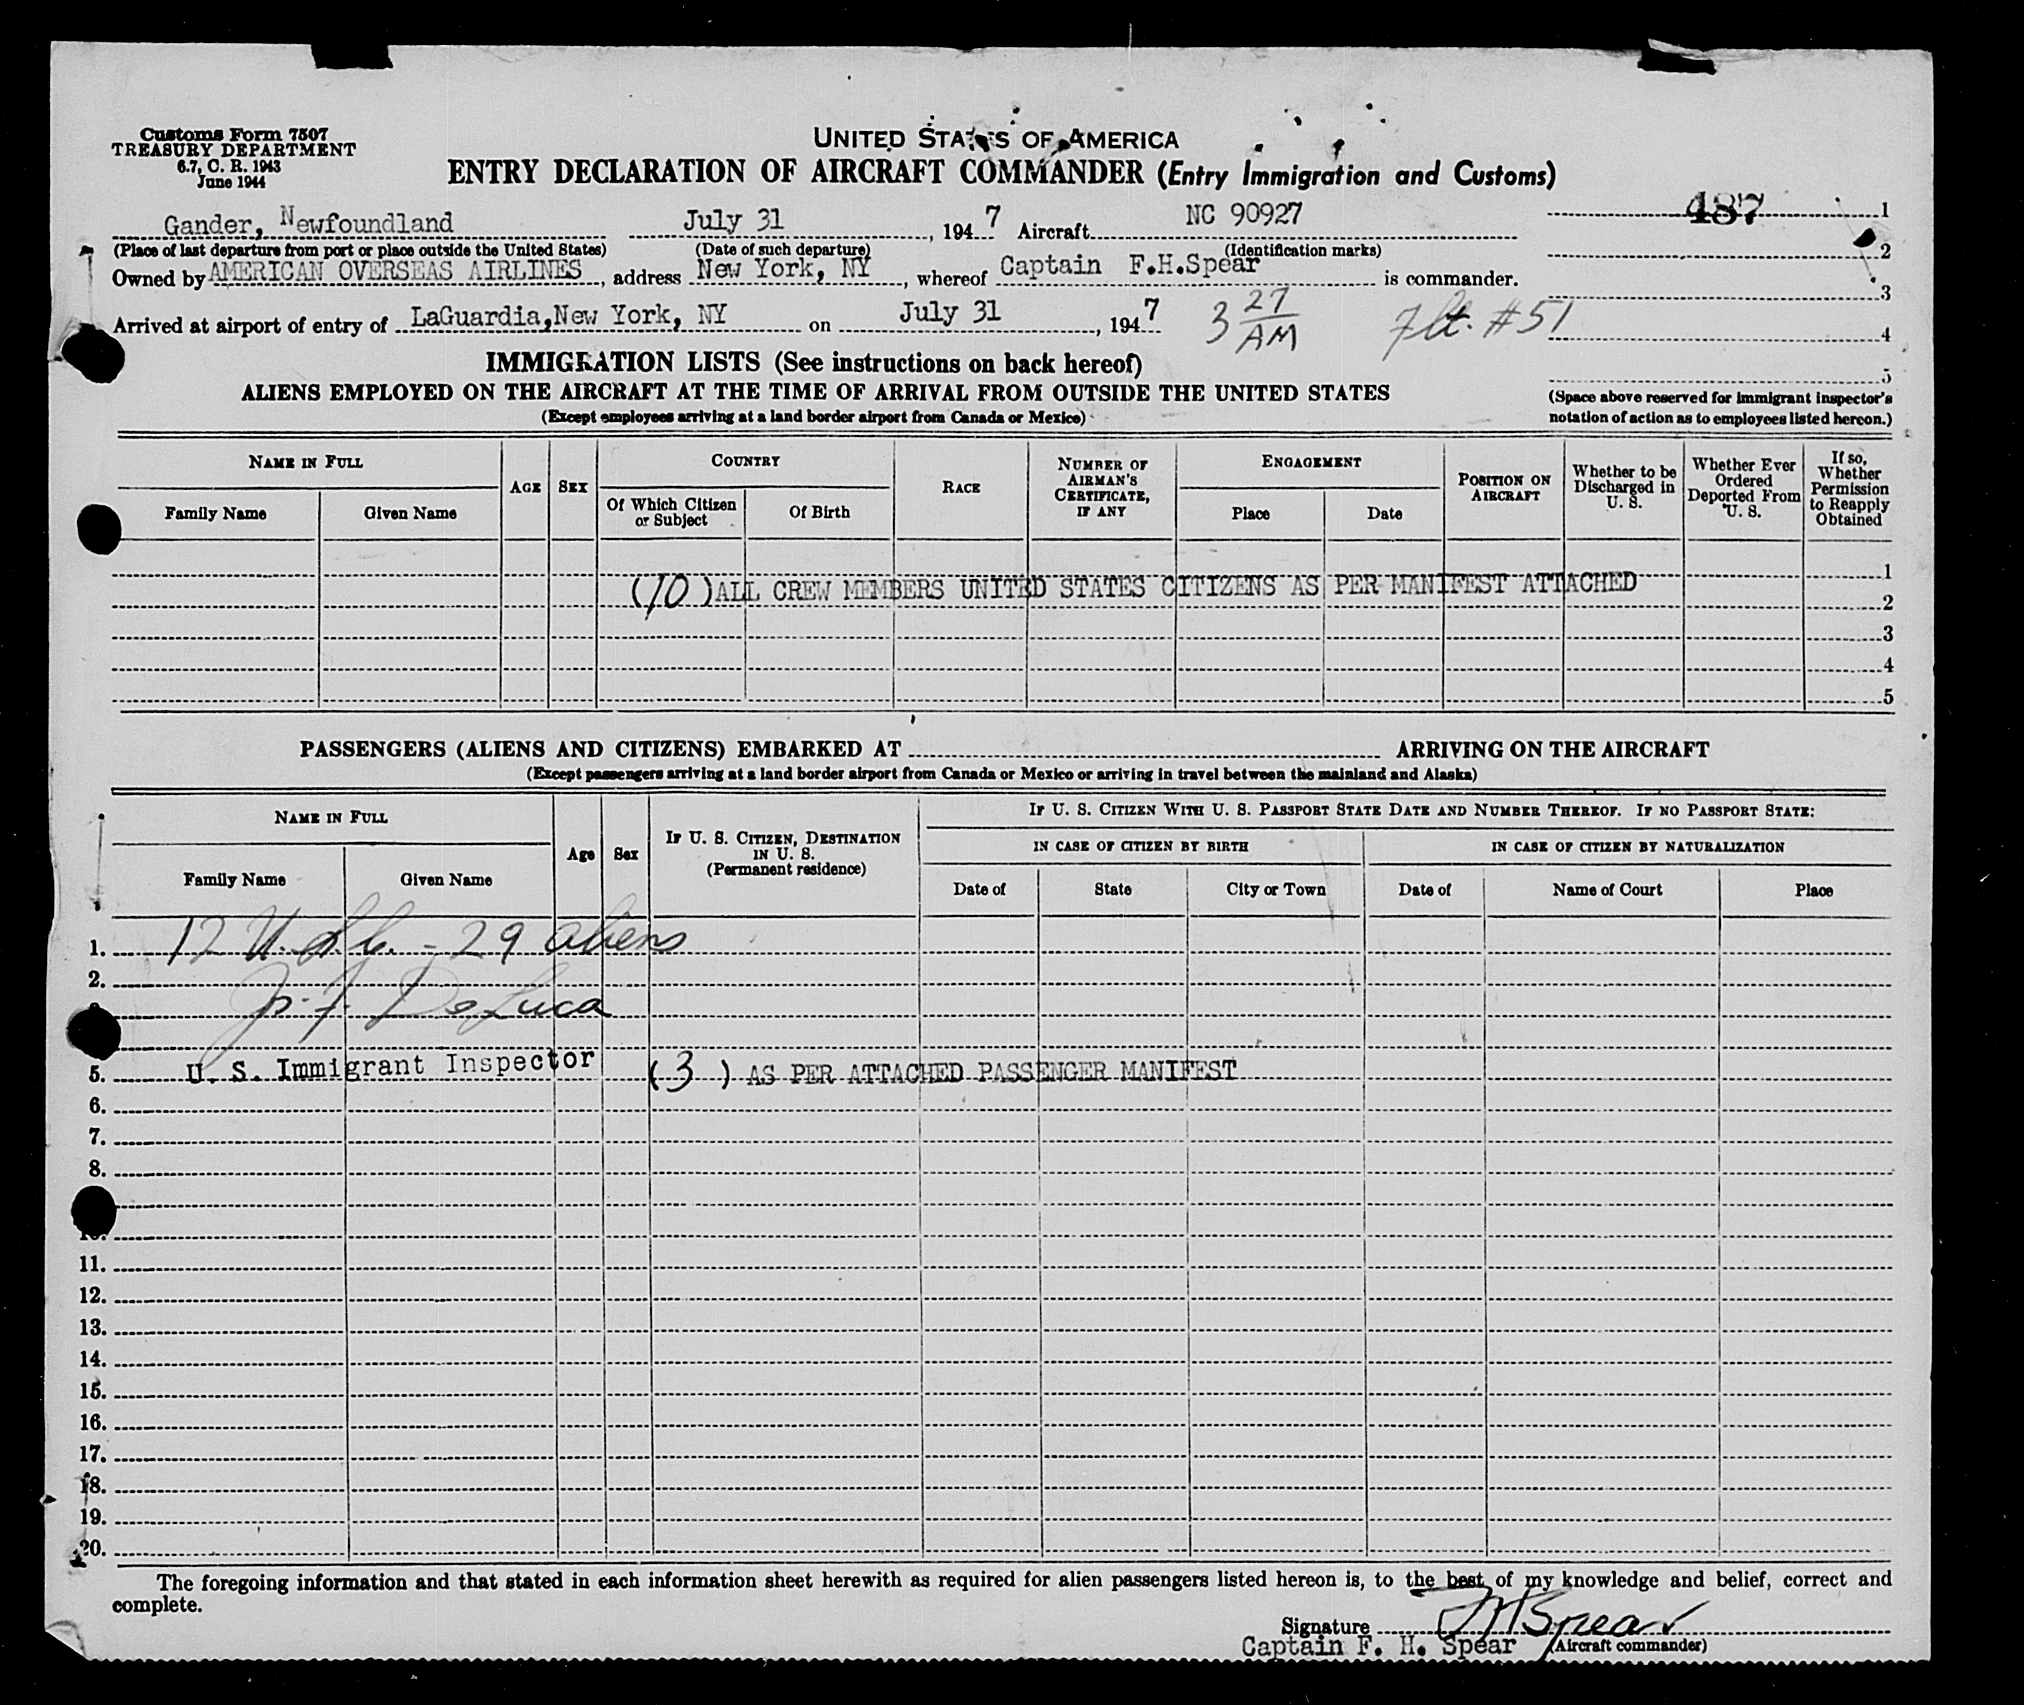 Customs Form 7507
TREASURY DEPARTMENT
6.7, C. R. 1943
June 1944
UNITED STATES OF AMERICA
ENTRY DECLARATION OF AIRCRAFT COMMANDER (Entry Immigration and Customs)
Gander, Newfoundland July 31 , 1947 Aircraft NC 90927
487 1
(Place of last departure from port or place outside the United States) (Date of such departure) (Identification marks)
2
Owned by AMERICAN OVERSEAS AIRLINES, address New York, NY, whereof Captain F.H.Spear is commander.
3
Arrived at airport of entry of LaGuardia,New York, NY on July 31, 1947 3 27 AM Flt. #51
4
5
IMMIGRATION LISTS (See instructions on back hereof)
ALIENS EMPLOYED ON THE AIRCRAFT AT THE TIME OF ARRIVAL FROM OUTSIDE THE UNITED STATES
(Except employees arriving at a land border airport from Canada or Mexico)
(Space above reserved for immigrant inspector's
notation of action as to employees listed hereon.)
NAME IN FULL
Family Name Given Name
AGE SEX
COUNTRY
Of Which Citizen or Subject Of Birth
RACE
NUMBER OF AIRMAN'S CERTIFICATE, IF ANY
ENGAGEMENT
Place Date
POSITION ON AIRCRAFT
Whether to be Discharged in U. S.
Whether Ever Ordered Deported From U. S.
If so, Whether Permission to Reapply Obtained
1
(10) ALL CREW MEMBERS UNITED STATES CITIZENS AS PER MANIFEST ATTACHED
2
3
4
5
PASSENGERS (ALIENS AND CITIZENS) EMBARKED AT ARRIVING ON THE AIRCRAFT
(Except passengers arriving at a land border airport from Canada or Mexico or arriving in travel between the mainland and Alaska)
NAME IN FULL
Family Name Given Name
Age Sex
IF U. S. CITIZEN, DESTINATION IN U. S.
(Permanent residence)
IF U. S. CITIZEN WITH U. S. PASSPORT STATE DATE AND NUMBER THEREOF. IF NO PASSPORT STATE:
IN CASE OF CITIZEN BY BIRTH IN CASE OF CITIZEN BY NATURALIZATION
Date of State City or Town Date of Name of Court Place
1. 12 U.S.C. - 29 aliens
2.
DeLuca
U. S. Immigrant Inspector
5. (3) AS PER ATTACHED PASSENGER MANIFEST
6.
7.
8.
10.
11.
12.
13.
14.
15.
16.
17.
18.
19.
20.
The foregoing information and that stated in each information sheet herewith as required for alien passengers listed hereon is, to the best of my knowledge and belief, correct and
complete.
Signature FHSpear
Captain F. H. Spear (Aircraft commander)